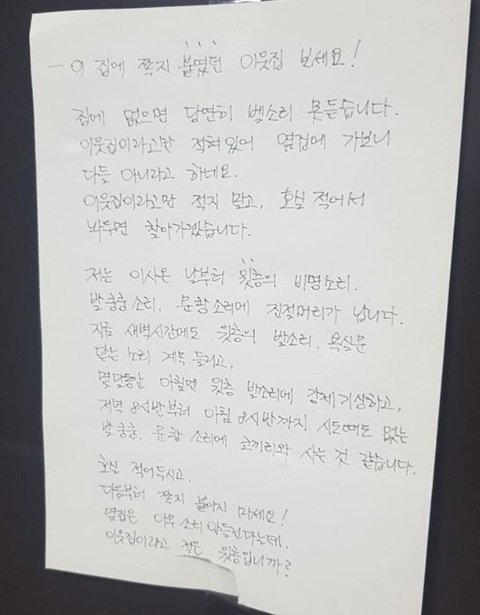 - 이 집에 쪽지 붙였던 이웃집 보세요!
집에 없으면 당연히 벨소리 못듣습니다.
이웃집이라고만 적혀있어 옆집에 가보니
다들 아니라고 하네요.
이웃집이라고만 적지 말고, 호실 적어서
놔두면 찾아가겠습니다.
저는 이사온 날부터 윗층의 비명소리.
발쿵쿵소리. 문쾅소리에 진절머리가 납니다.
지금 새벽시간에도 윗층의 발소리. 욕실문
닫는 소리 계속 들리고,
몇달동안 아침엔 윗층 발소리에 강제기상하고,
저녁 8시반부터 아침 8시반까지 시도때도 없는
발쿵쿵. 문쾅 소리에 코끼리와 사는 것 같습니다.
호실 적어두시고.
다음부터 쪽지 붙이지 마세요!
옆집은 아무 소리 안들린다는데.
이웃집이라고 적은 윗층입니까?